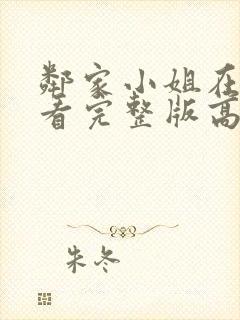 鄰家小姐在
看完整版高
朱冬